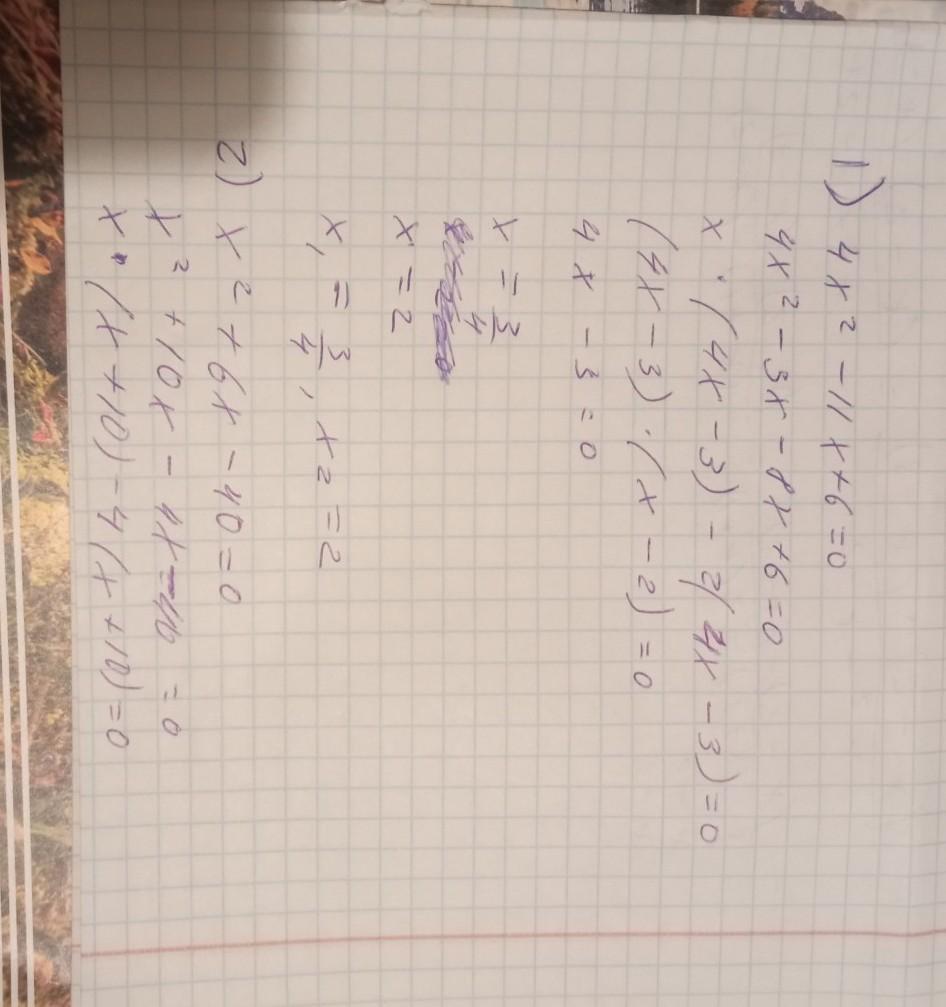 1) 4x² - 11x + 6 = 0
4x² - 3x - 8x + 6 = 0
x · (4x - 3) - 2(4x - 3) = 0
(4x - 3) · (x - 2) = 0
4x - 3 = 0
x = 3/4
x = 2
x₁ = 3/4, x2 = 2
2) x² + 6x - 40 = 0
x² + 10x - 4x - 40 = 0
x · (x + 10) - 4(x + 10) = 0